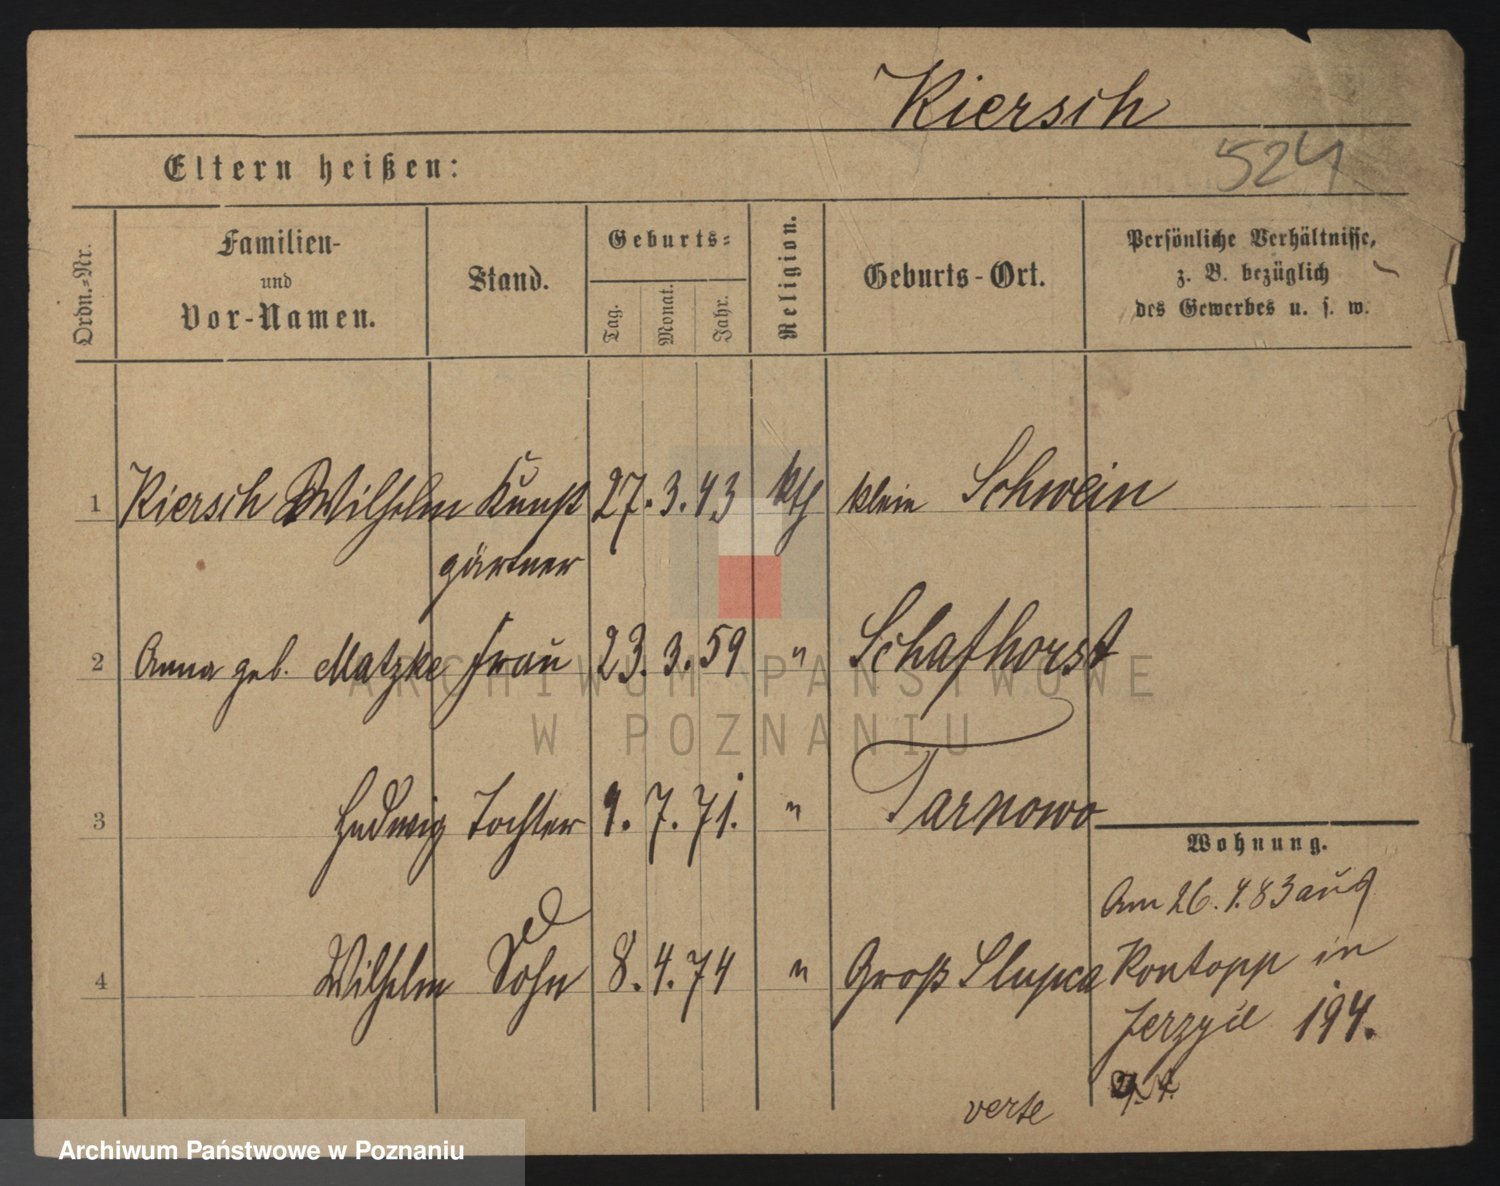 Kiersch
524
Eltern heißen:
Ordn.-Nr.
Familien-
und
Vor-Namen.
Stand.
Geburts-
Tag.
Monat.
Jahr.
Religion.
Geburts-Ort.
Persönliche Verhältnisse,
z. B. bezüglich
des Gewerbes u. s. w.
1 Kiersch Wilhelm Kunst 27. 3. 43 kth klein Schwein
gärtner
2 Anna geb. Matzke Frau 23. 3. 59 " Schafhorst
3 Hedwig Tochter 9. 7. 71. " Tarnowo
Wohnung.
Am 26. 4. 83 auf
4 Wilhelm Sohn 8. 4. 74 " Groß Slupca Kontopp in
Jerzyce 194.
verte
ARCHIWUM PAŃSTWOWE
W POZNANIU
Archiwum Państwowe w Poznaniu